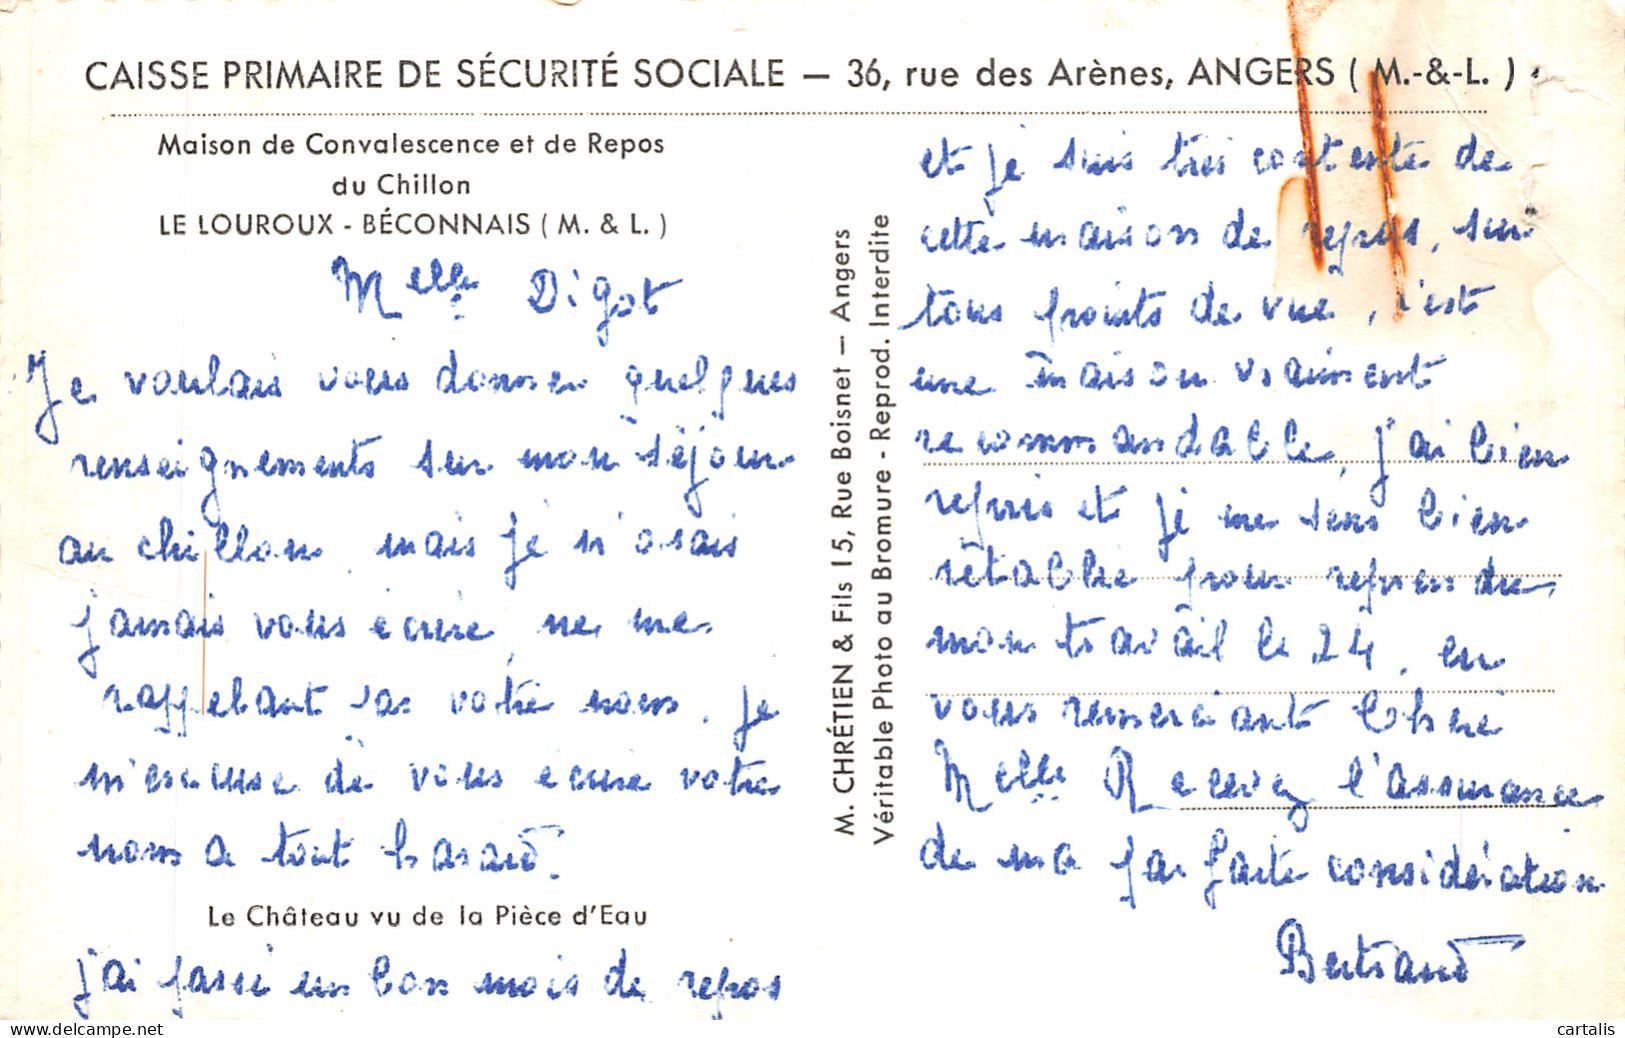 CAISSE PRIMAIRE DE SÉCURITÉ SOCIALE — 36, rue des Arènes, ANGERS ( M.-&-L. )
Maison de Convalescence et de Repos
du Chillon
LE LOUROUX - BÉCONNAIS ( M. & L. )
Melle Digot
Je voulais vous donner quelques
renseignements sur mon séjour
au chillon, mais je n'osais
jamais vous écrire, ne me
rappelant pas votre nom. Je
m'excuse de vous écrire votre
nom a tout hasard.
Le Château vu de la Pièce d'Eau
j'ai passé un bon mois de repos
M. CHRÉTIEN & Fils 15, Rue Boisnet — Angers
Véritable Photo au Bromure - Reprod. Interdite
et je suis très contente de
cette maison de repos, sur
tous points de vue, c'est
une maison vraiment
recommandable, j'ai bien
repris et je me sens bien
rétablie pour reprendre
mon travail le 24, en
vous remerciant Chère
Melle Recevez l'assurance
de ma parfaite considération
Bertrand
cartalis